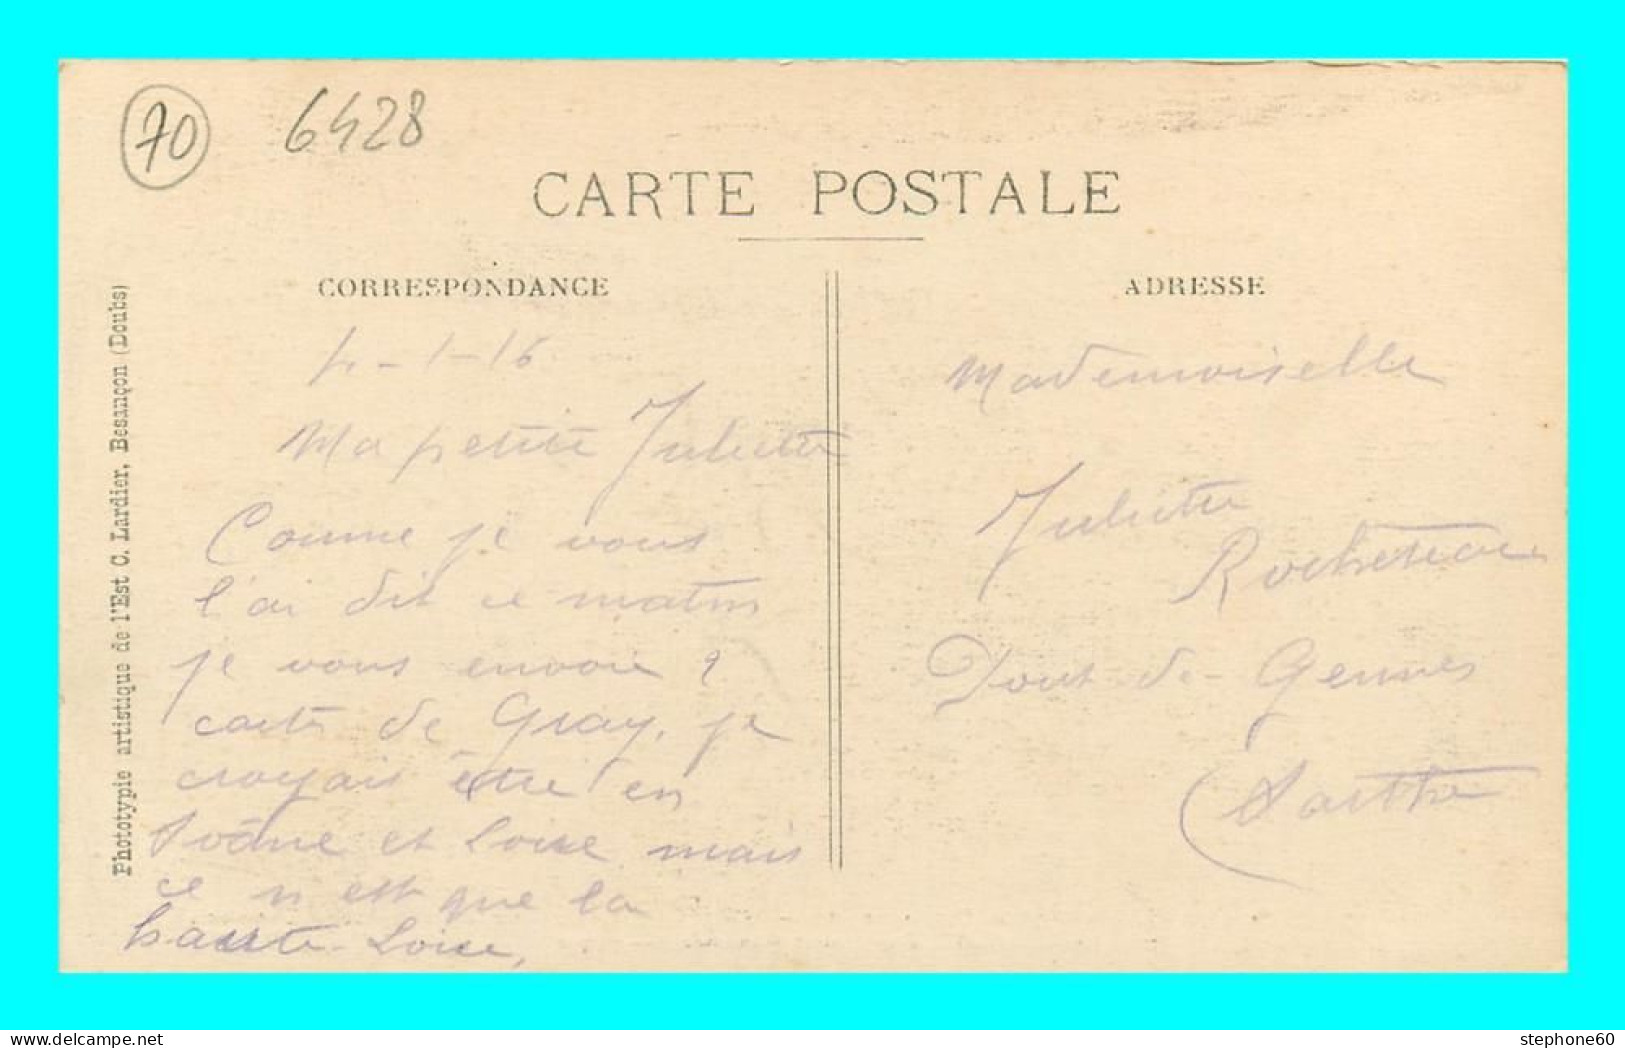 70 6428
CARTE POSTALE
CORRESPONDANCE
4-1-16
Ma petite Juliette
Comme je vous
l'ai dit ce matin
je vous envoie 2
carte de Gray, je
croyais être en
Soâne et Loire mais
ce n'est que la
haute-Loire,
ADRESSE
Mademoiselle
Juliette
Rocheteau
Pont-de-Gennes
(Sarthe
Phototypie artistique de l'Est C. Lardier, Besançon (Doubs)
stephone60